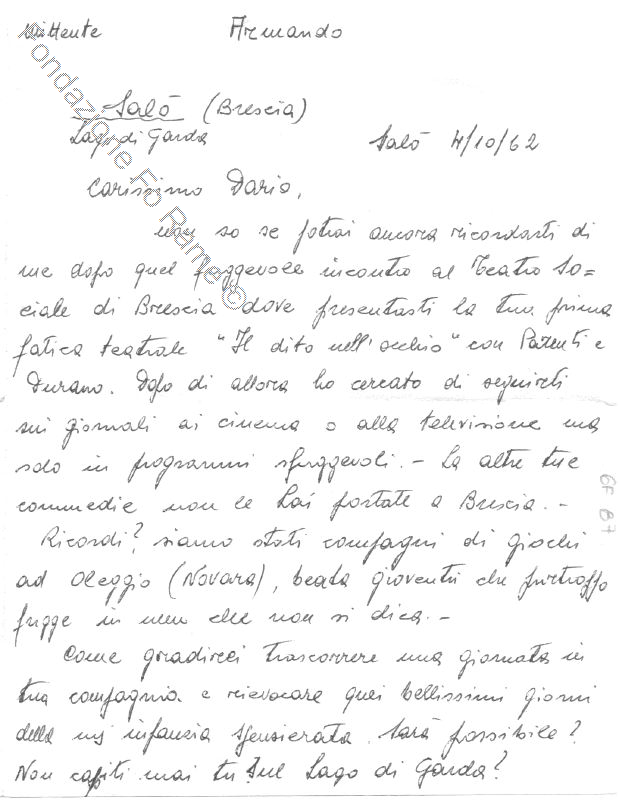 Mittente Armando
Salò (Brescia)
Lago di Garda
Salò 4/10/62
Carissimo Dario,
non so se potrai ancora ricordarti di
me dopo quel fuggevole incontro al Teatro So=
ciale di Brescia dove presentasti la tua prima
fatica teatrale "Il dito nell'occhio" con Parenti e
Durano. Dopo di allora ho cercato di seguirti
sui giornali ai cinema o alla televisione ma
solo in programmi sfuggevoli. - La altre tue
commedie non le hai portate a Brescia. -
Ricordi?, siamo stati compagni di giochi
ad Oleggio (Novara), beata gioventù che purtroppo
fugge in men che non si dica. -
Come gradirei trascorrere una giornata in
tua compagnia e rievocare quei bellissimi giorni
della ns infanzia spensierata. Sarà possibile?
Non capiti mai tu sul Lago di Garda?
Fondazione Fo Rame ©
GF 87